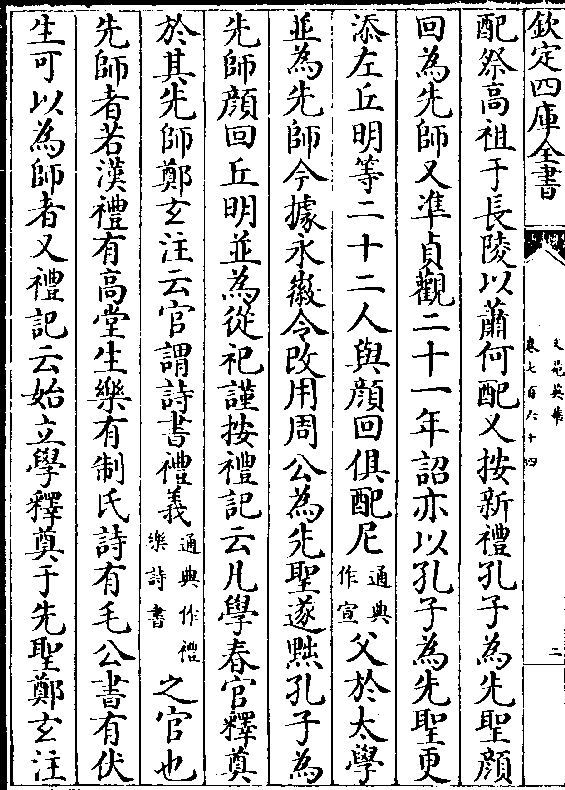 欽定四庫全書
文苑英華
卷七百六十四
二
配祭高祖于長陵以蕭何配又按新禮孔子為先聖顔
回為先師又準貞觀二十一年詔亦以孔子為先聖更
添左丘明等二十二人與顔回俱配尼通典作宣父於太學
並為先師今據永徽令改用周公為先聖遂黜孔子為
先師顔回丘明並為從祀謹按禮記云凡學春官釋奠
於其先師鄭玄注云官謂詩書禮義通典作禮樂詩書之官也
先師者若漢禮有高堂生樂有制氏詩有毛公書有伏
生可以為師者又禮記云始立學釋奠于先聖鄭玄注